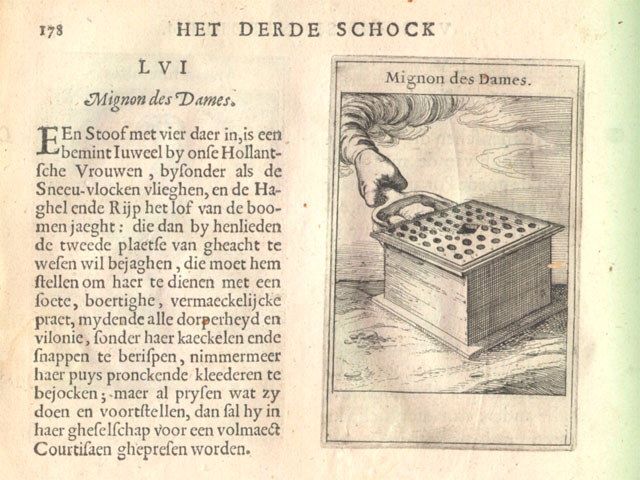 178 HET DERDE SCHOCK
LVI
Mignon des Dames.
EEn Stoof met vier daer in, is een
bemint Iuweel by onſe Hollant-
ſche Vrouwen, byſonder als de
Sneeu-vlocken vlieghen, en de Ha-
ghel ende Rijp het lof van de boo-
men jaeght: die dan by henlieden
de tweede plaetſe van gheacht te
weſen wil bejaghen, die moet hem
ſtellen om haer te dienen met een
ſoete, boertighe, vermaeckelijcke
praet, mydende alle dorperheyd en
vilonie, ſonder haer kaeckelen ende
ſnappen te beriſpen, nimmermeer
haer puys pronckende kleederen te
bejocken; maer al pryſen wat zy
doen en voortſtellen, dan ſal hy in
haer gheſelſchap voor een volmaect
Courtiſaen ghepreſen worden.
Mignon des Dames.